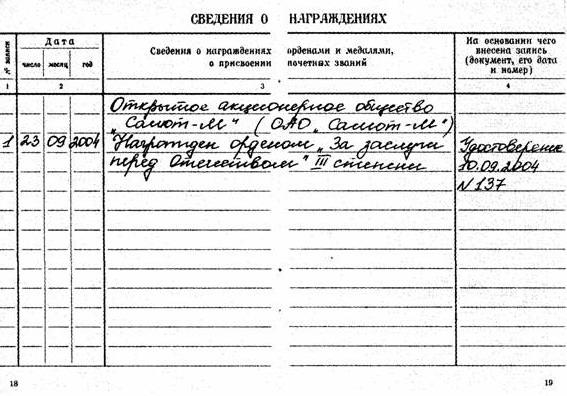 СВЕДЕНИЯ О НАГРАЖДЕНИЯХ
№ записи
Дата
число месяц год
Сведения о награждениях орденами и медалями,
о присвоении почетных званий
На основании чего
внесена запись
(документ, его дата
и номер)
1 2 3 4
Открытое акционерное общество
"Салют-М" (ОАО "Салют-М")
1 23 09 2004 Награжден орденом "За заслуги
перед Отечеством" III степени
Удостоверение
10.09.2004
N 137
18
19